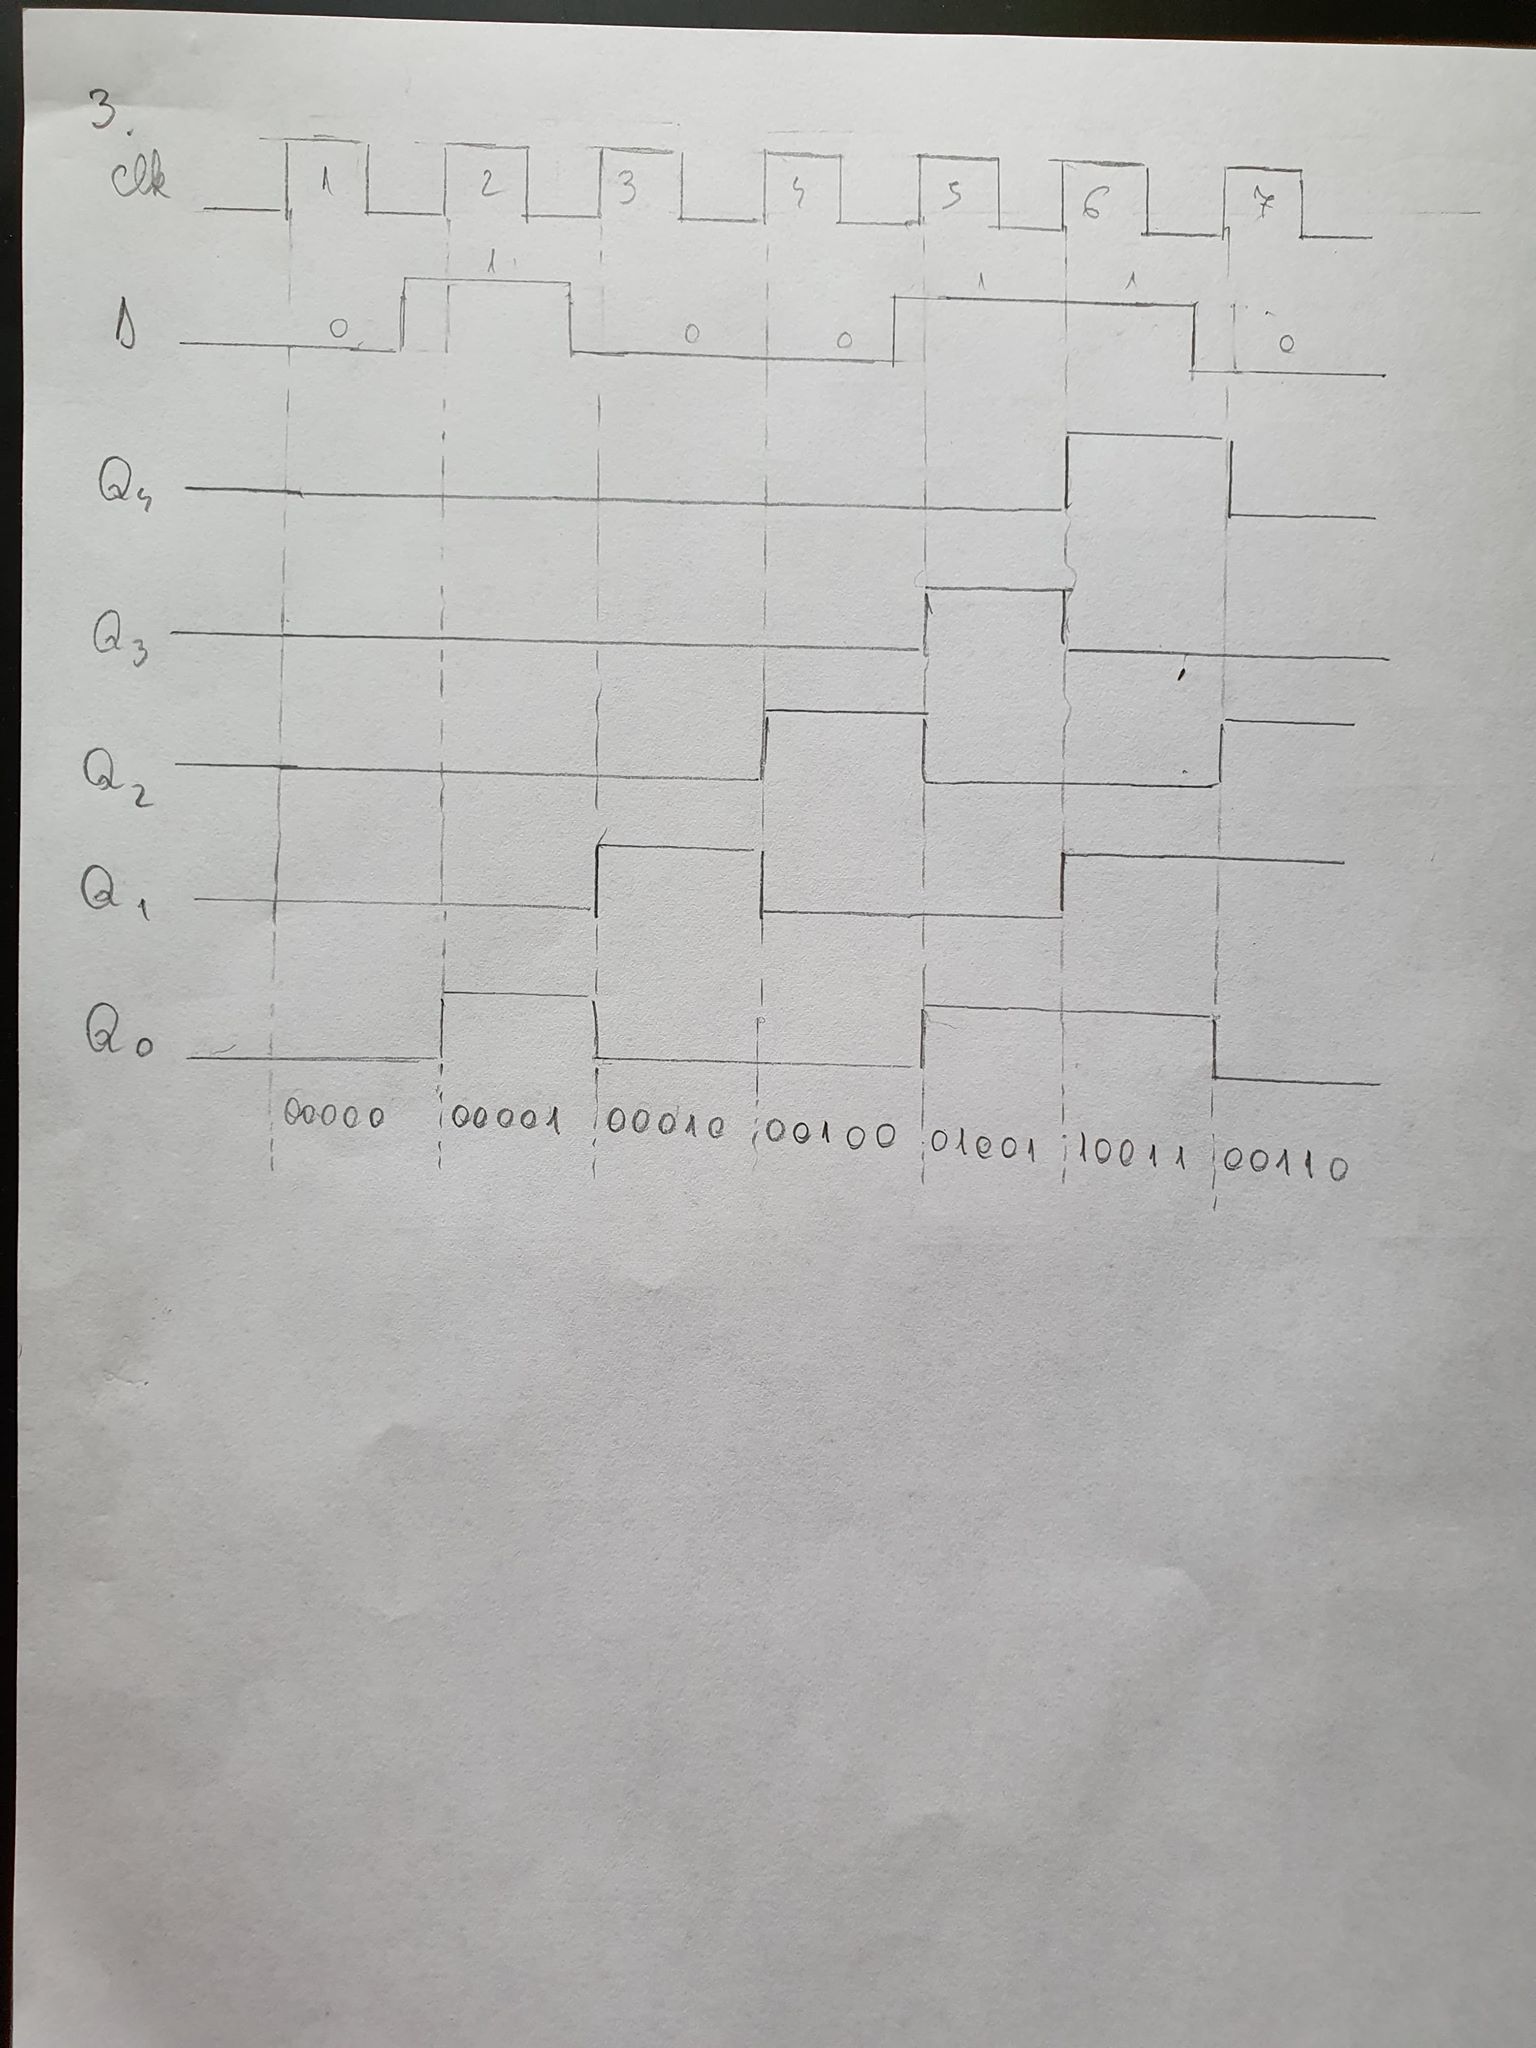 3.
clk 1 2 3 4 5 6 7
D 0 1 0 0 1 1 0
Q4
Q3
Q2
Q1
Q0
00000 00001 00010 00100 01001 10011 00110